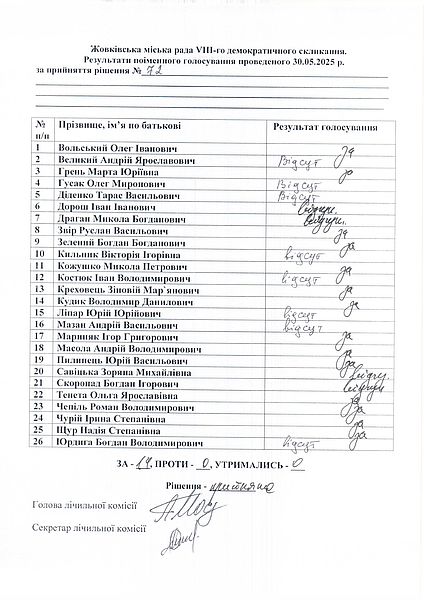 Жовківська міська рада VIII-го демократичного скликання.
Результати поіменного голосування проведеного 30.05.2025 р.
за прийняття рішення № 72
№ п/п Прізвище, ім’я по батькові Результат голосування
1 Вольський Олег Іванович за
2 Великий Андрій Ярославович Відсут
3 Грень Марта Юріївна за
4 Гусак Олег Миронович Відсут
5 Діденко Тарас Васильович Відсут
6 Дорош Іван Іванович
7 Драган Микола Богданович
8 Звір Руслан Васильович за
9 Зелений Богдан Богданович за
10 Кильник Вікторія Ігорівна відсут
11 Кожушко Микола Петрович за
12 Костюк Іван Володимирович відсут
13 Креховець Зіновій Мар`янович за
14 Кудик Володимир Данилович за
15 Ліпар Юрій Юрійович відсут
16 Мазан Андрій Васильович відсут
17 Мариняк Ігор Григорович за
18 Масола Андрій Володимирович за
19 Пилипець Юрій Васильович за
20 Савіцька Зоряна Михайлівна
21 Скоропад Богдан Ігорович
22 Тенета Ольга Ярославівна за
23 Чепіль Роман Володимирович за
24 Чурій Ірина Степанівна за
25 Щур Надія Степанівна за
26 Юрдига Богдан Володимирович відсут
ЗА - 14, ПРОТИ - 0, УТРИМАЛИСЬ - 0
Рішення - прийнято
Голова лічильної комісії
Секретар лічильної комісії